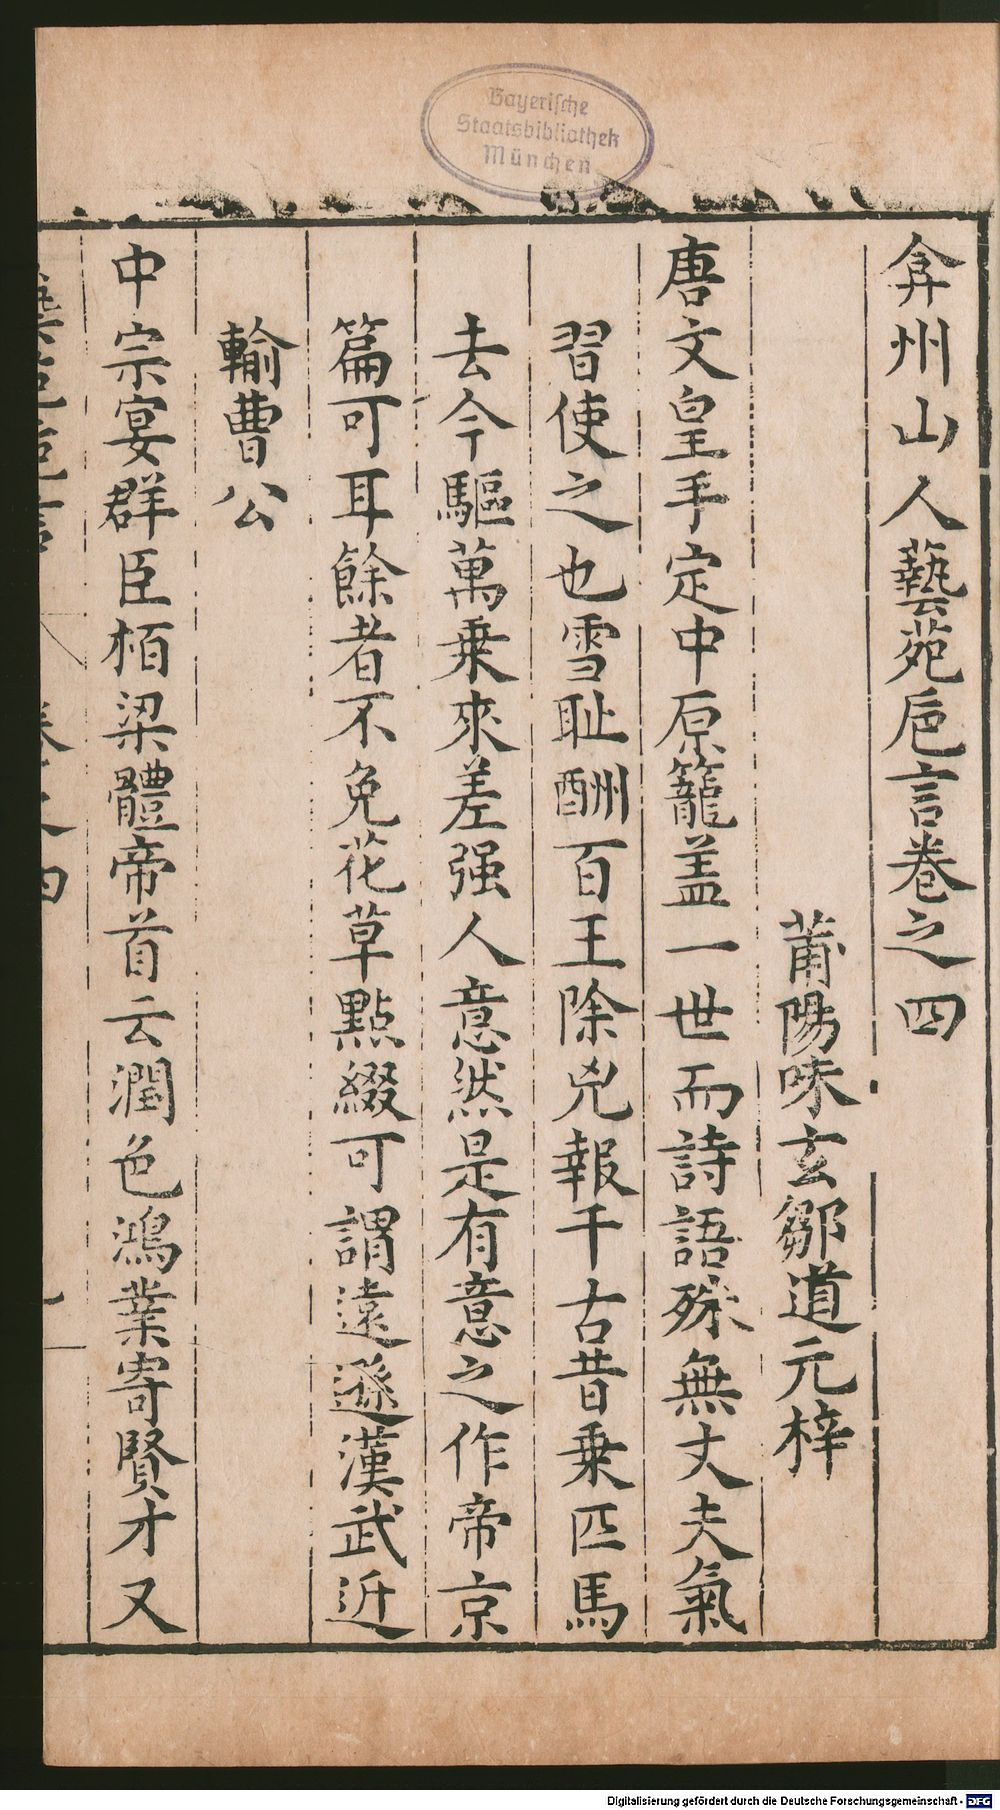 Bayerische
Staatsbibliothek
München
弇州山人藝苑卮言卷之四
莆陽味玄鄒道元梓
唐文皇手定中原籠盖一世而詩語殊無丈夫氣
習使之也雪耻酬百王除兇報千古昔乗匹馬
去今驅萬乗來差强人意然是有意之作帝京
篇可耳餘者不免花草點綴可謂遠遜漢武近
輸曹公
中宗宴群臣栢梁體帝首云潤色鴻業寄賢才又
Digitalisierung gefördert durch die Deutsche Forschungsgemeinschaft - DFG